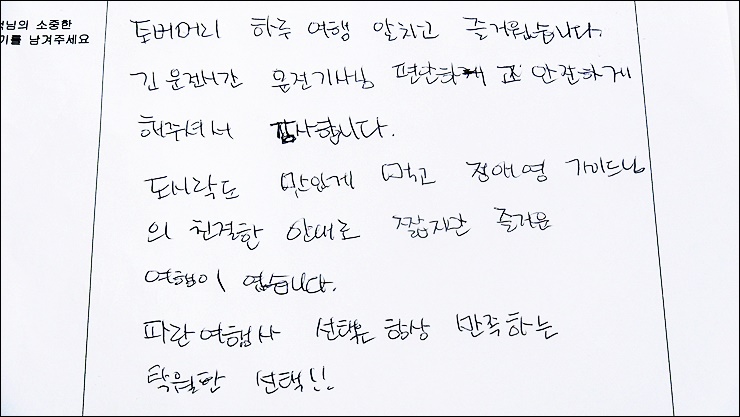 객님의 소중한
기를 남겨주세요
토버머리 하루 여행 알차고 즐거웠습니다.
긴 운전시간 운전기사님 편안하게 고 안전하게
해주셔서 감사합니다.
도시락도 맛있게 먹고 정애영 가이드님
의 친절한 안내로 짧지만 즐거운
여행이 였습니다.
파란여행사 선택은 항상 만족하는
탁월한 선택!!